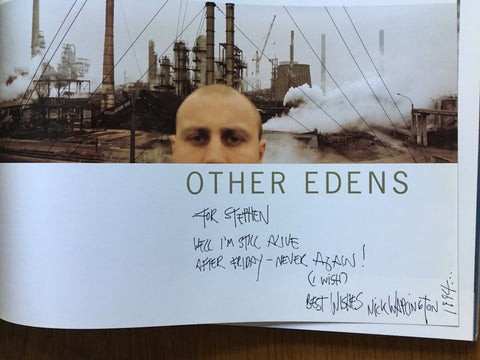 OTHER EDENS
FOR STEPHEN
WELL I'M STILL ALIVE
AFTER FRIDAY - NEVER AGAIN!
(I WISH)
BEST WISHES NICK WAPLINGTON